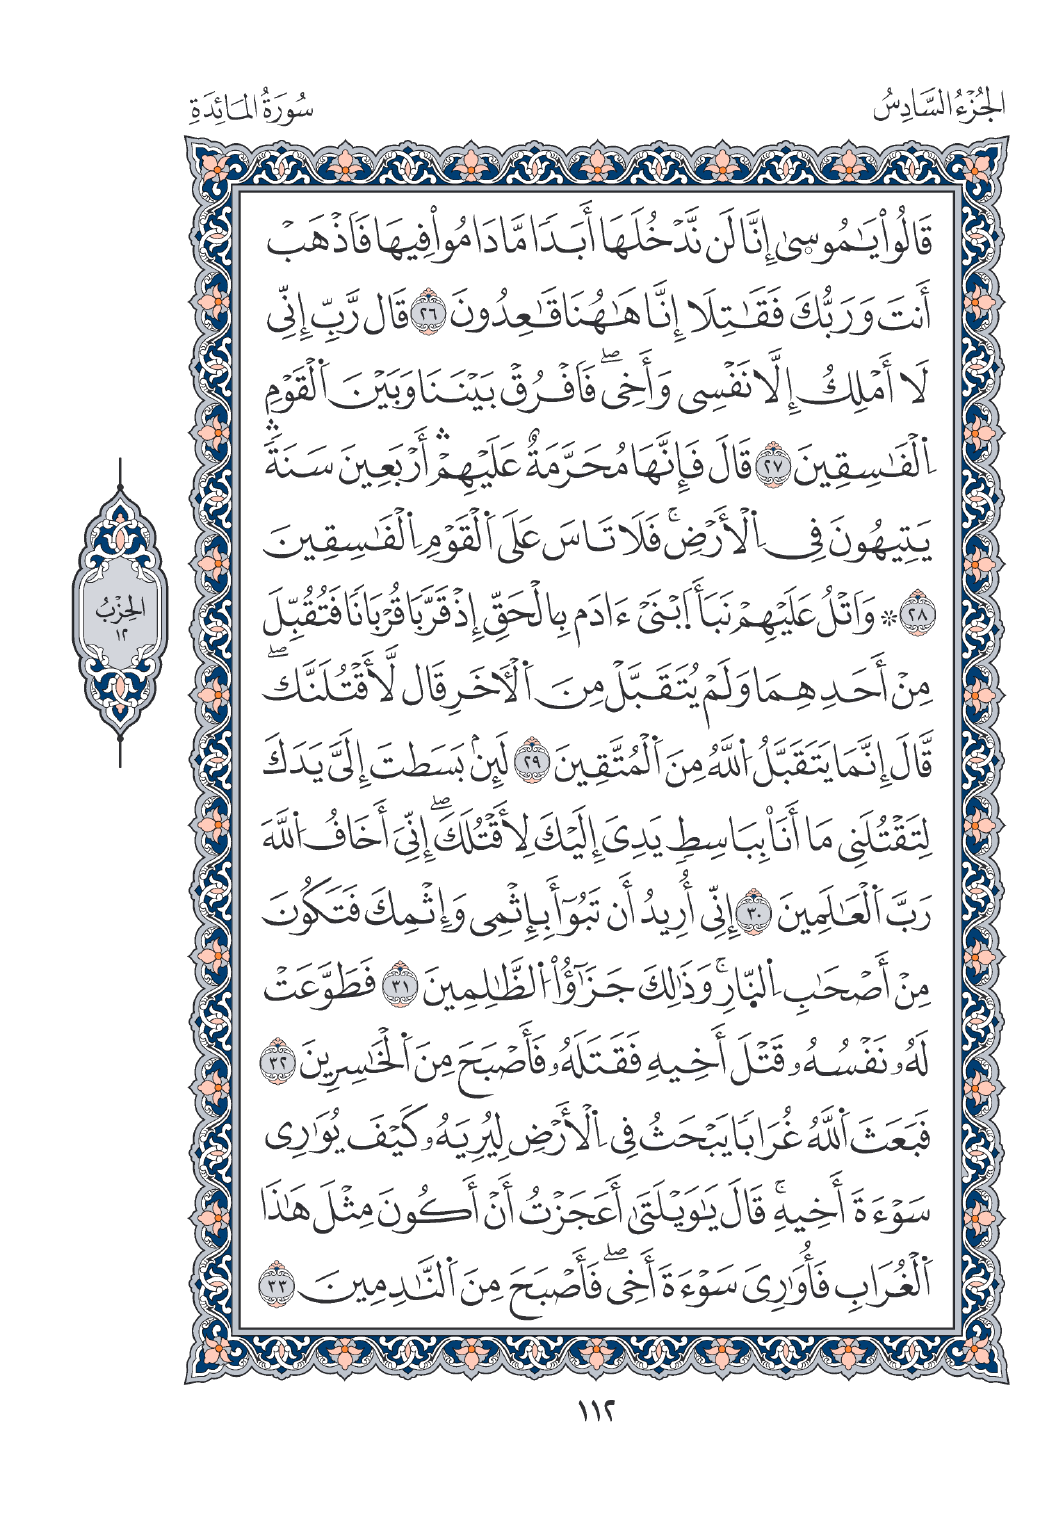 الجُزْءُ السَّادِسُ
سُورَةُ المَائِدَةِ
قَالُواْ يَٰمُوسىٰ إِنَّا لَن نَّدْخُلَهَا أَبَدَا مَّا دَامُواْ فِيهَا فَاَذْهَبْ
أَنتَ وَرَبُّكَ فَقَٰتِلَا إِنَّا هَٰهُنَا قَٰعِدُونَ ٢٦ قَال رَّبِّ إِنِّي
لَا أَمْلِكُ إِلَّا نَفْسِي وَأَخِيۖ فَاَفْرُقْ بَيْنَنَا وَبَيْنَ اَلْقَوْمِ
اِلْفَٰسِقِينَ ٢٧ قَالَ فَإِنَّهَا مُحَرَّمَةٌ عَلَيْهِمْۛ أَرْبَعِينَ سَنَةَۛ
يَتِيهُونَ فِي اِلْأَرْضِۚ فَلَا تَاسَ عَلَى اَلْقَوْمِ اِلْفَٰسِقِينَ
٢٨ ۞ وَاَتْلُ عَلَيْهِمْ نَبَأَ اَبْنَيْ ءَادَم بِالْحَقِّ إِذْ قَرَّبَا قُرْبَانَا فَتُقُبِّلَ
مِنْ أَحَدِهِمَا وَلَمْ يُتَقَبَّلْ مِنَ اَلْأٓخَرِ قَال لَّأَقْتُلَنَّكۖ
قَّالَ إِنَّمَا يَتَقَبَّلُ اُللَّهُ مِنَ اَلْمُتَّقِينَ ٢٩ لَئِنۢ بَسَطتَ إِلَيَّ يَدَكَ
لِتَقْتُلَنِي مَا أَنَا۠ بِبَاسِطٖ يَدِيَ إِلَيْكَ لِأَقْتُلَكَۖ إِنِّيَ أَخَافُ اُللَّهَ
رَبَّ اَلْعَٰلَمِينَ ٣٠ إِنِّي أُرِيدُ أَن تَبُوٓأَ بِإِثْمِي وَإِثْمِكَ فَتَكُونَ
مِنْ أَصْحَٰبِ اِلنّ۪ارِۚ وَذَٰلِكَ جَزَٰٓؤُاْ اُلظَّٰلِمِينَ ٣١ فَطَوَّعَتْ
لَهُۥ نَفْسُهُۥ قَتْلَ أَخِيهِ فَقَتَلَهُۥ فَأَصْبَحَ مِنَ اَلْخَٰسِرِينَ ٣٢
فَبَعَثَ اَللَّهُ غُرَابَا يَبْحَثُ فِي اِلْأَرْضِ لِيُرِيَهُۥ كَيْفَ يُوَٰرِي
سَوْءَةَ أَخِيهِۚ قَالَ يَٰوَيْلَتَىٰ أَعَجَزْتُ أَنْ أَكُونَ مِثْلَ هَٰذَا
اَلْغُرَابِ فَأُوَٰرِيَ سَوْءَةَ أَخِيۖ فَأَصْبَحَ مِنَ اَلنَّٰدِمِينَ ٣٣
الحِزْبُ
١٢
١١٢